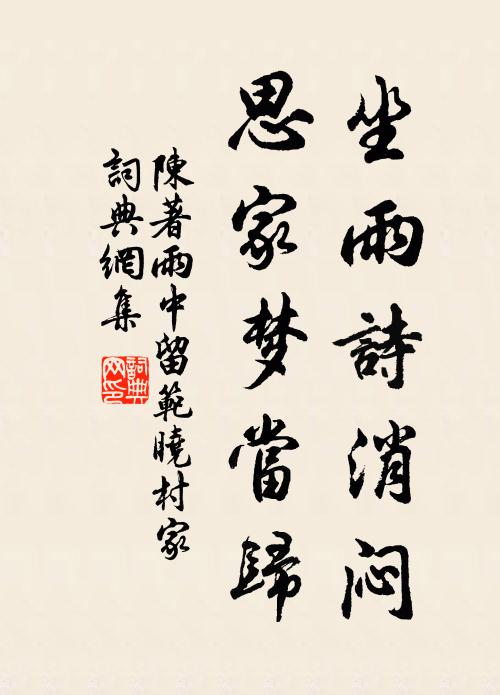 坐雨詩消闷
思家梦當歸
陳著雨中留範曉村家
詞典網集
詞典网印